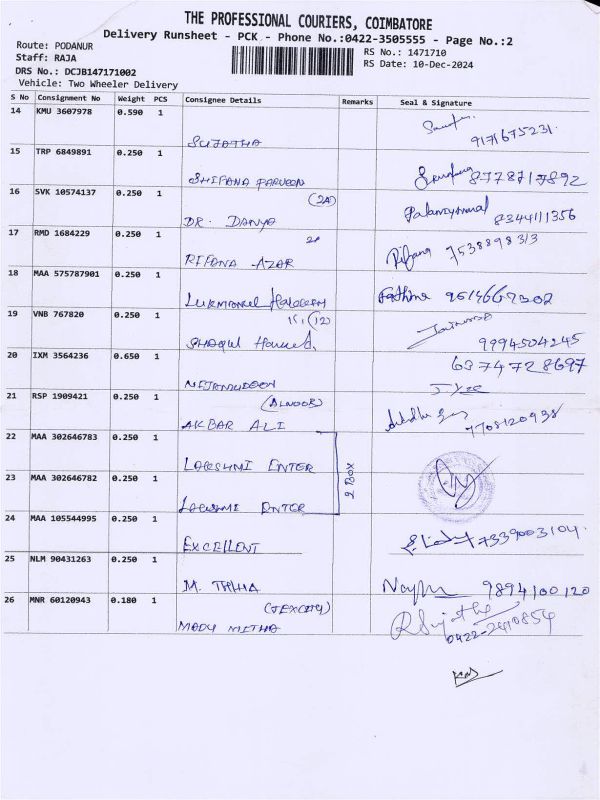 THE PROFESSIONAL COURIERS, COIMBATORE
Delivery Runsheet - PCK - Phone No.:0422-3505555 - Page No.:2
Route: PODANUR
Staff: RAJA
DRS No.: DCJB147171002
Vehicle: Two Wheeler Delivery
RS No.: 1471710
RS Date: 10-Dec-2024
S No Consignment No Weight PCS Consignee Details Remarks Seal & Signature
14 KMU 3607978 0.590 1
SUJATHA 9171675231
15 TRP 6849891 0.250 1
SHIFANA PARVEEN 8778717892
16 SVK 10574137 0.250 1 (2A)
DR. DANYA 8344111356
17 RMD 1684229 0.250 1 2A
RIFANA AZAR 7538898313
18 MAA 575787901 0.250 1
Fathima
19 VNB 767820 0.250 1 (12)
9994504245
20 IXM 3564236 0.650 1 6374728697
NIJAMUDEEN
21 RSP 1909421 0.250 1
AKBAR ALI 7708120938
22 MAA 302646783 0.250 1
LAKSHMI ENTER
2 BOX
23 MAA 302646782 0.250 1
LAKSHMI ENTER
24 MAA 105544995 0.250 1
EXCELLENT 7339003104
25 NLM 90431263 0.250 1
M. 9894100120
26 MNR 60120943 0.180 1
0422-2410854